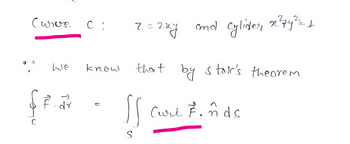 Curve C: z = 2xy and Cylinder x²+y²=1
∵ We know that by Stok's theorem
∮_C F⃗ . dr⃗ = ∬_S Curl F⃗ . n̂ ds